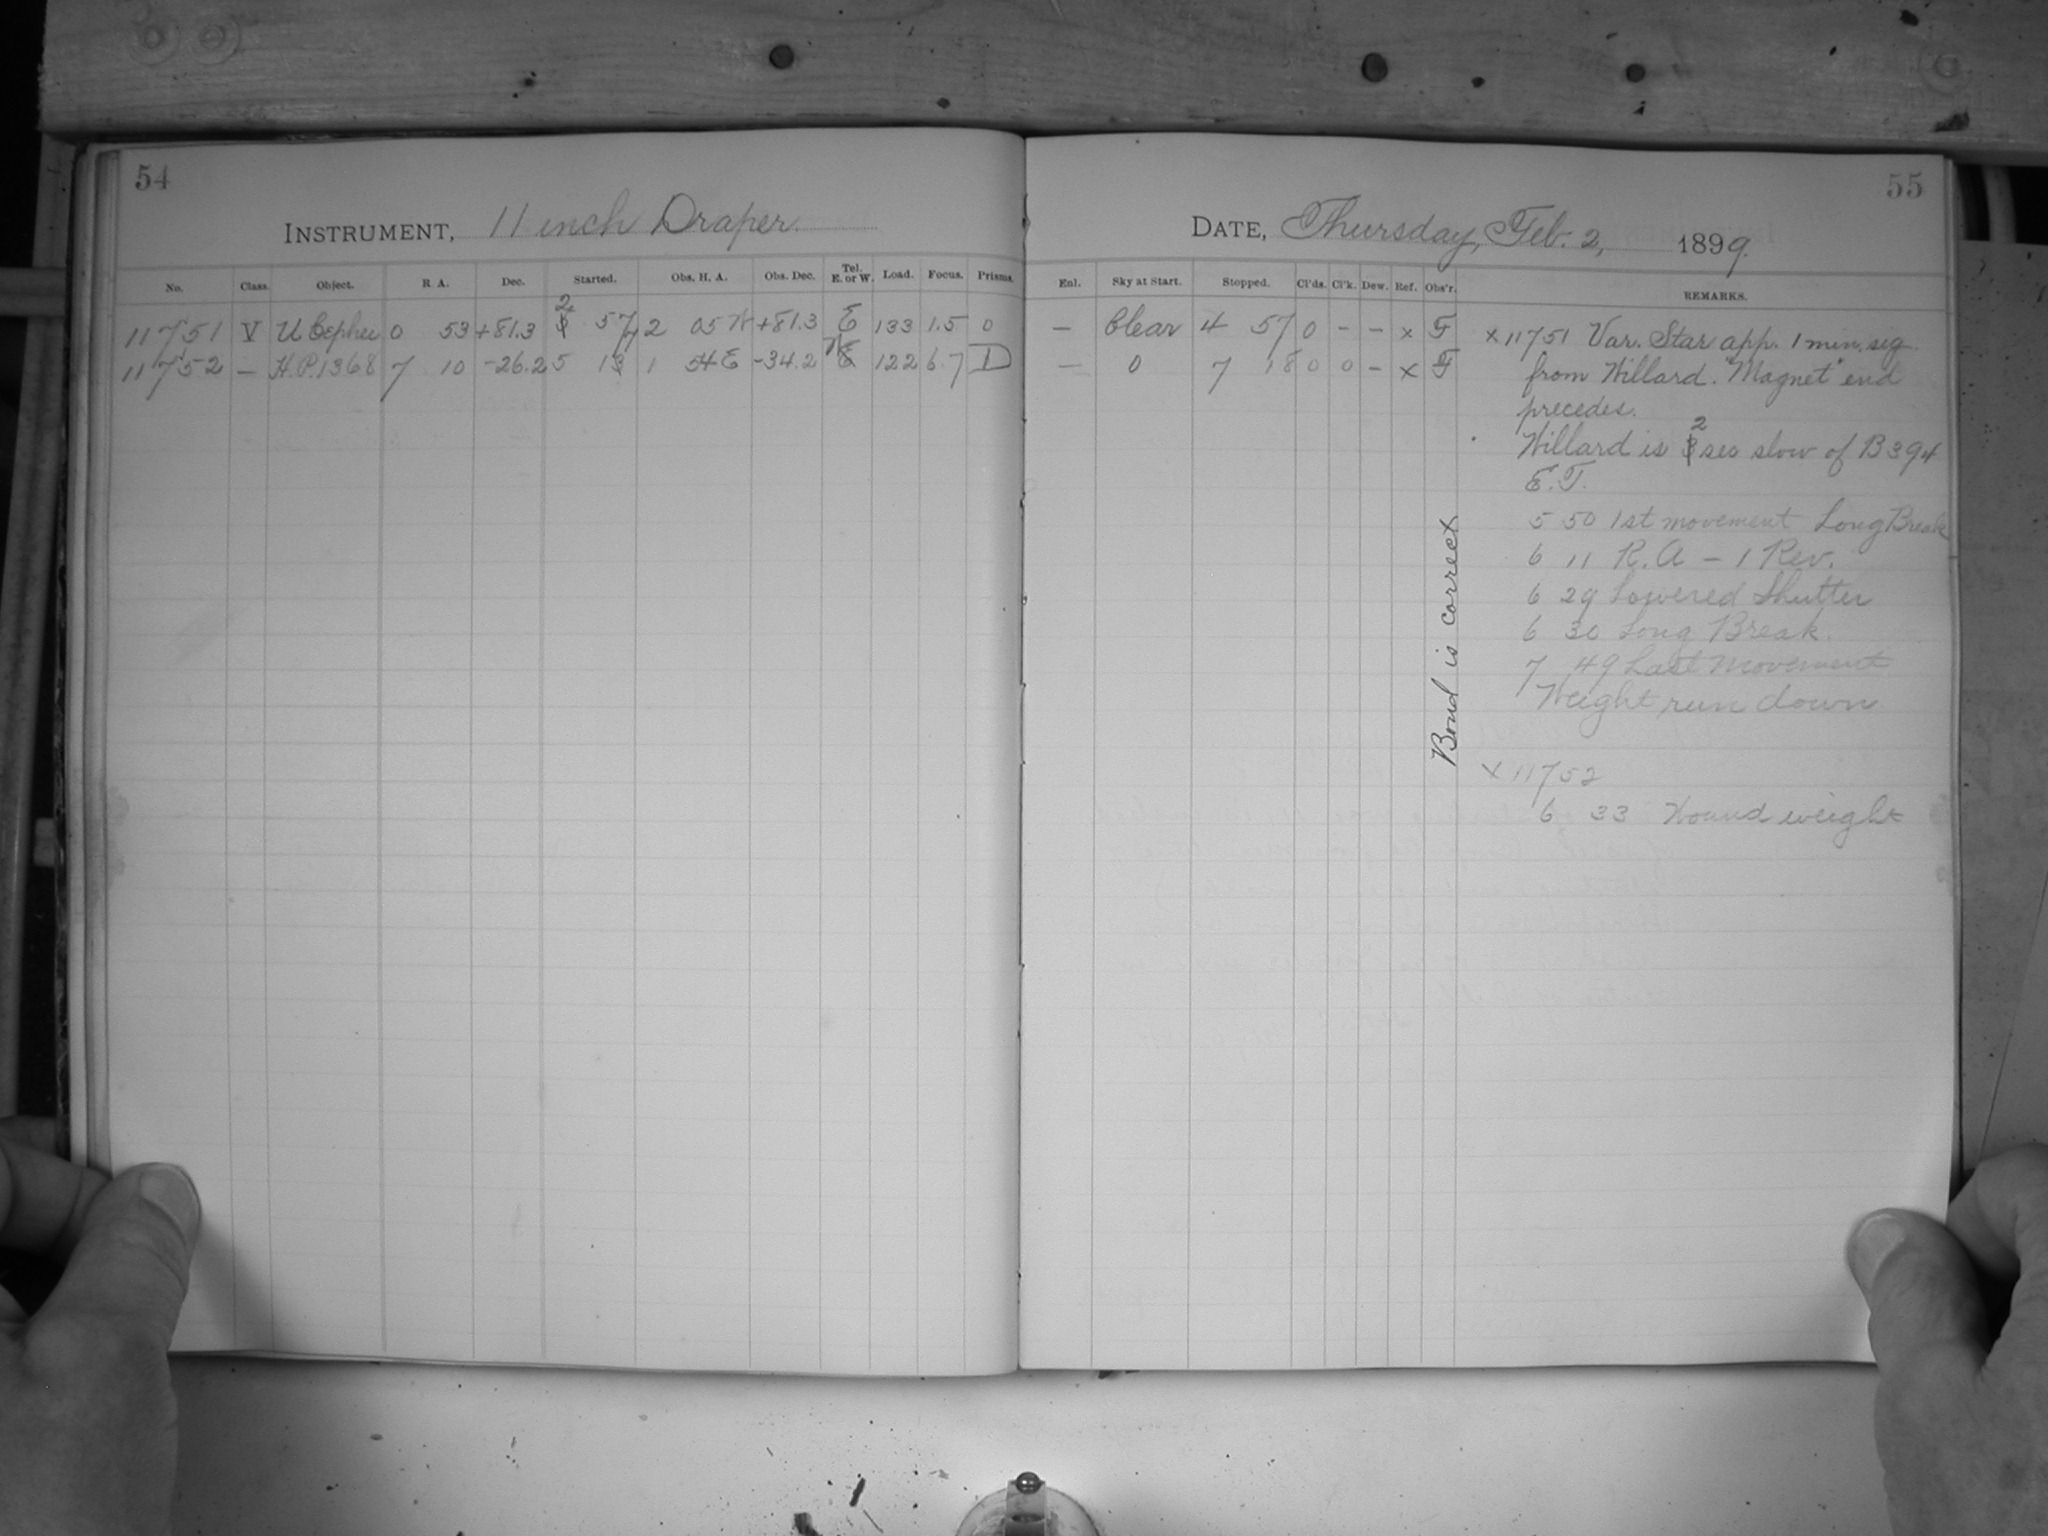 54
INSTRUMENT, 11 inch Draper.
No. Class. Object. R A. Dec. Started. Obs. H. A. Obs. Dec. Tel. E. or W. Load. Focus. Prisms.
11751 V U Cephei 0 53 +81.3 2 57 2 05 W +81.3 E 133 1.5 0
11752 — H.P. 1368 7 10 -26.2 5 13 1 54 E -34.2 W 122 6.7 D
55
DATE, Thursday, Feb. 2, 1899.
Enl. Sky at Start. Stopped. Cl'ds. Cl'k. Dew. Ref. Obs'r. REMARKS.
— Clear 4 57 0 - - x F
— 0 7 18 0 0 - x F
x 11751 Var. Star app. 1 min. sig.
from Willard. "Magnet" end
precedes.
Willard is 2 sec slow of B 394
E.T.
5 50 1st movement Long Break
6 11 R. A — 1 Rev.
6 29 Lowered Shutter
6 30 Long Break.
7 49 Last movement
Weight run down
Bond is correct
x 11752
6 33 Wound weight